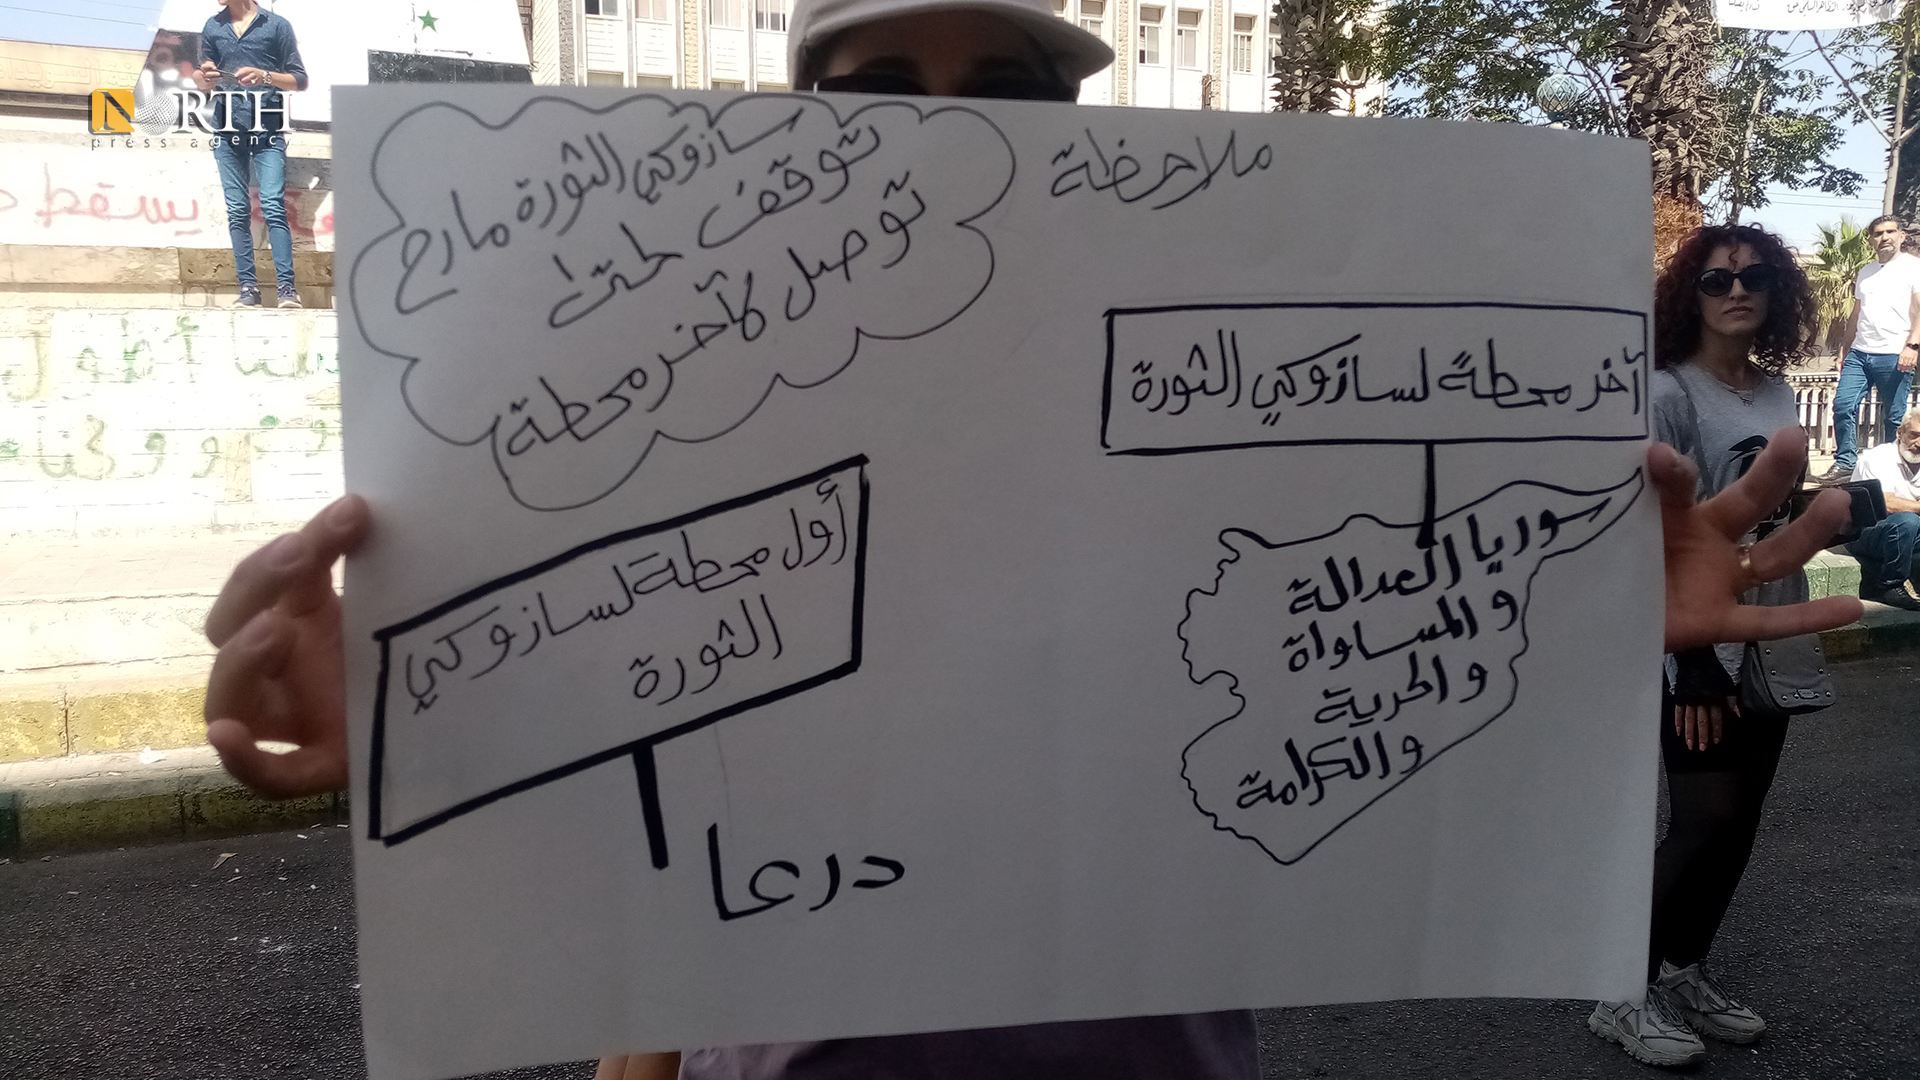 ملاحظة
سازوكي الثورة مارح
توقف حتى
توصل لآخر محطة
آخر محطة لسازوكي الثورة
سوريا العدالة
و المساواة
و الحرية
و الكرامة
أول محطة لسازوكي
الثورة
درعا
NORTH
press agency
يسقط